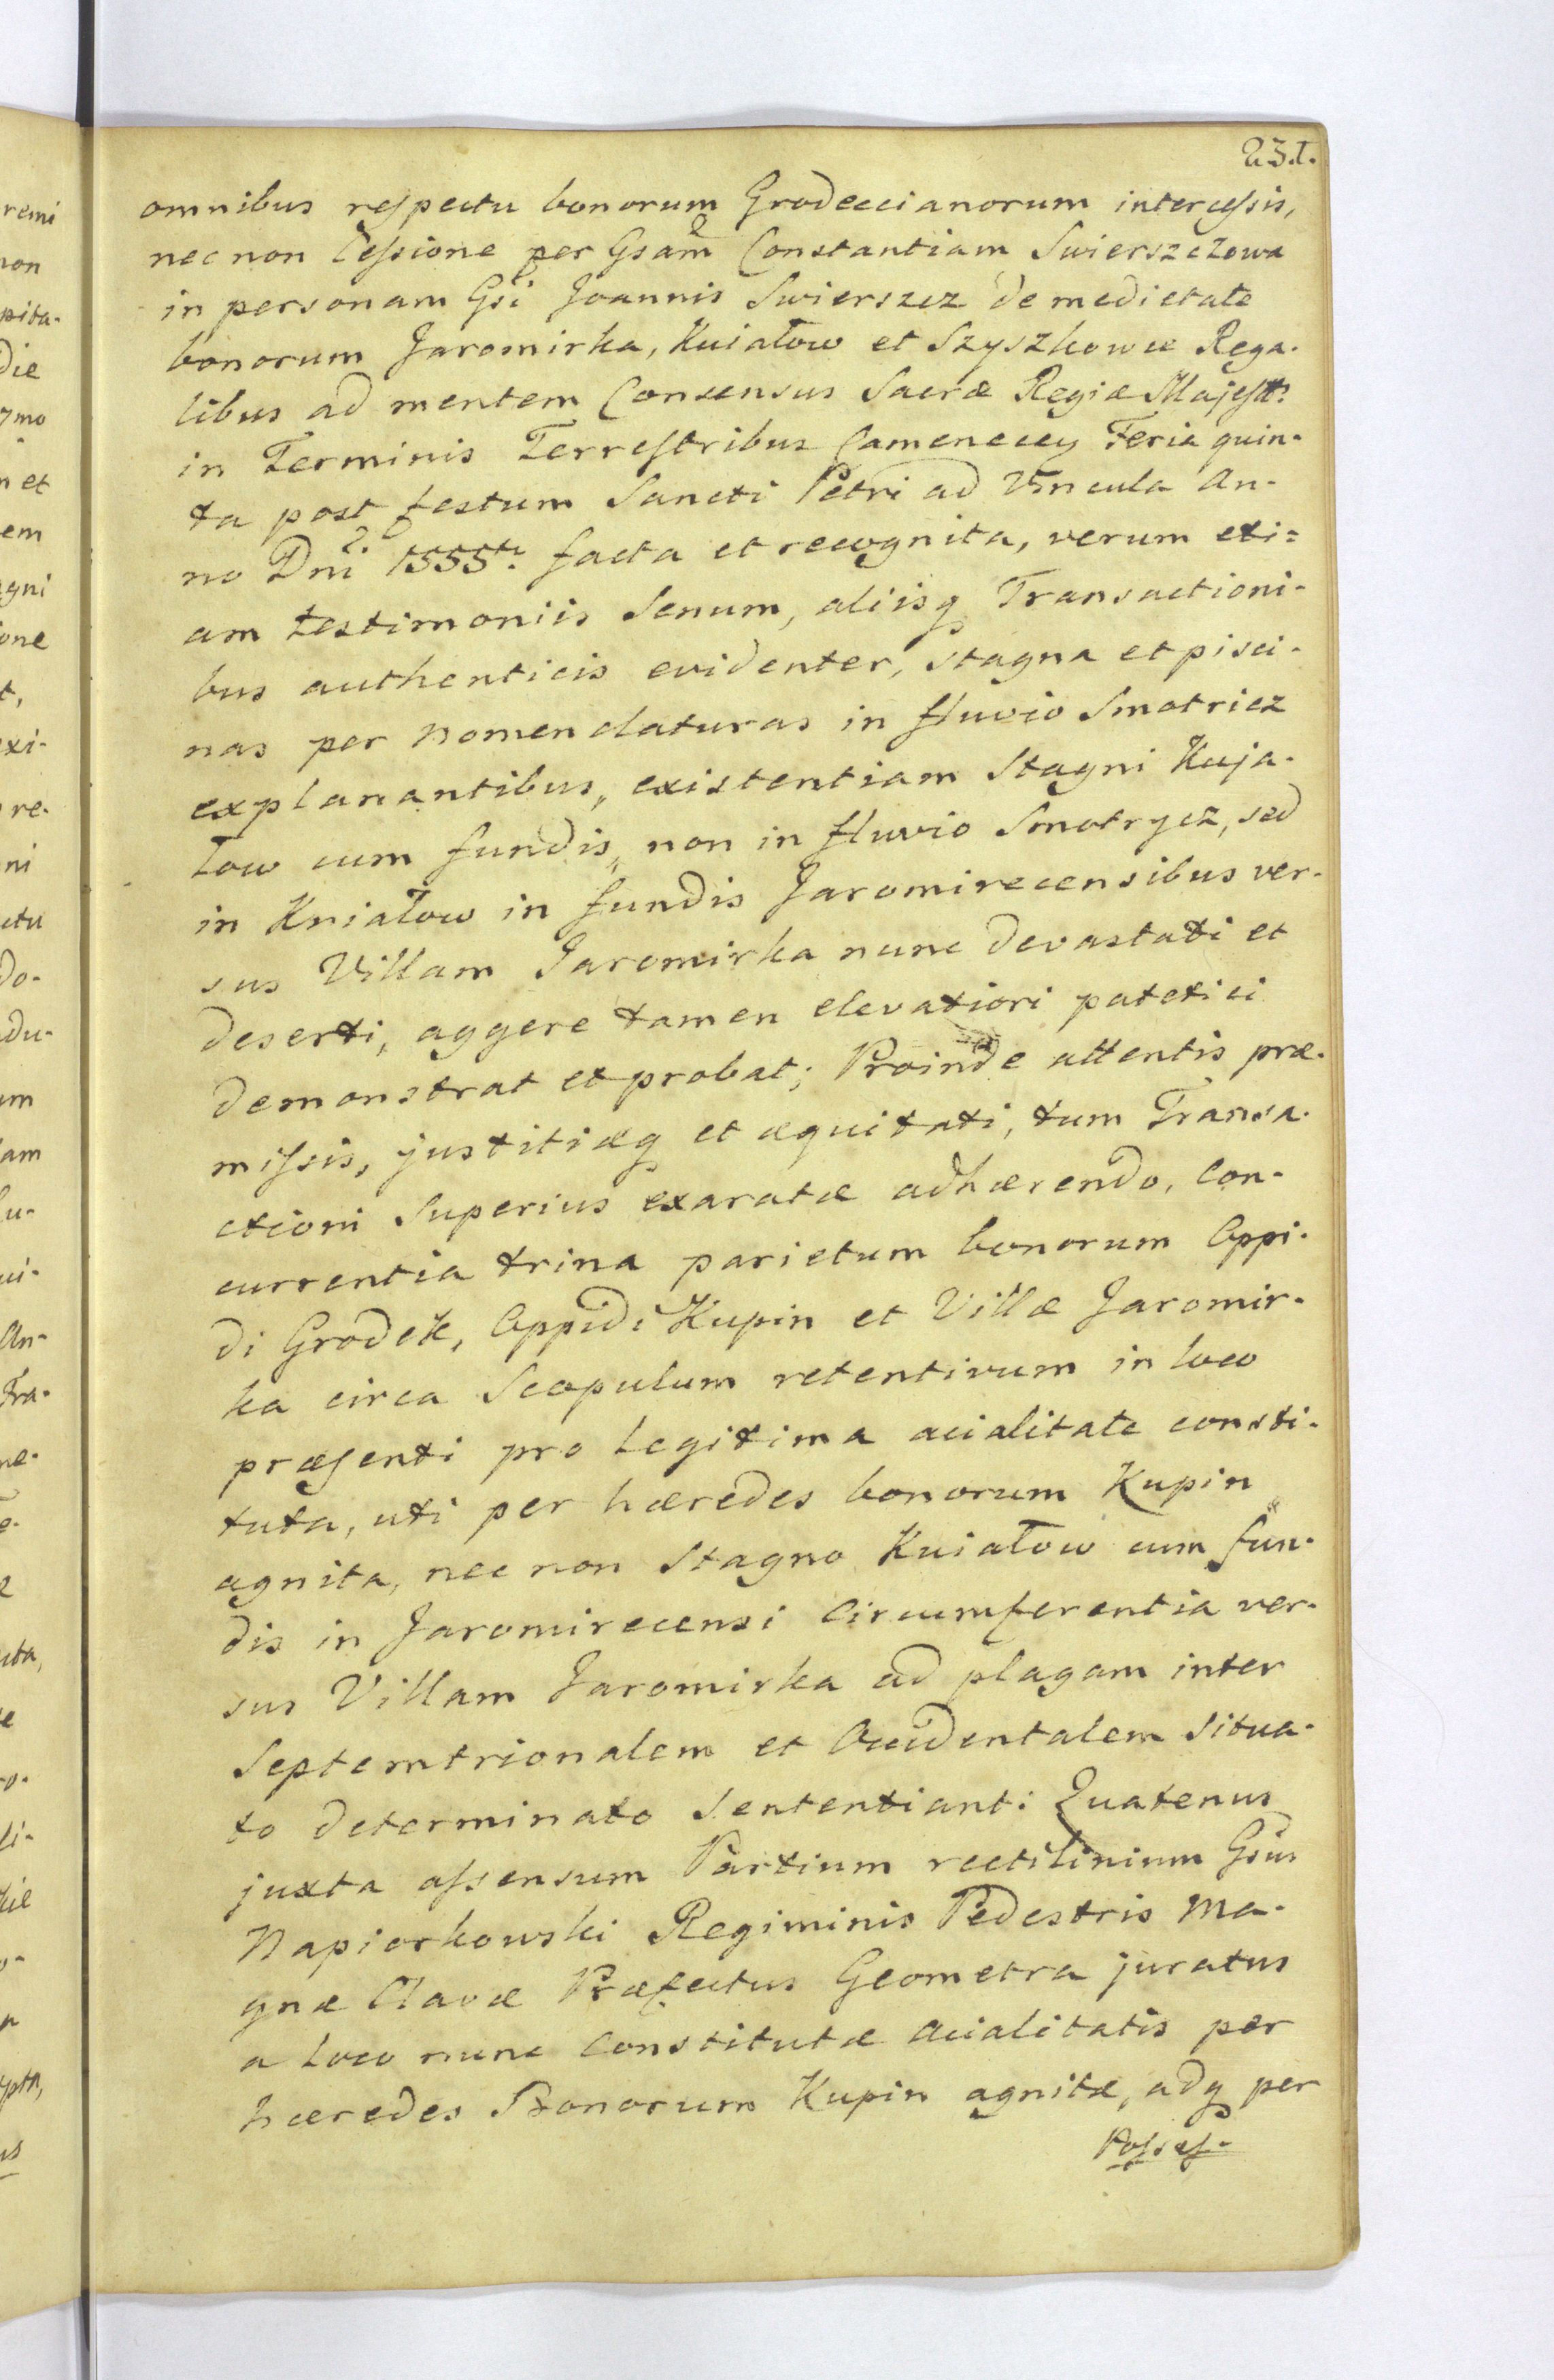 23.I.
omnibus respectu bonorum Grodeccianorum intercessis,
nec non Cessione per Gsam Constantiam Swierszczowa
in personam Gsi Joannis Swierszcz de medietate
bonorum Jaromirka, Kuiatow et Szyszkowce Rega-
libus ad mentem Consensus Sacræ Regiæ Majestt:
in Terminis Terrestribus Camenecey Feria quin-
ta post festum Sancti Petri ad Vincula An-
no Dni 1555ti facta et recognita, verum eti=
am testimoniis Senum, aliisq Transactioni-
bus authenticis evidenter, stagna et pisci-
nas per nomenclaturas in fluvio Smotricz
explanantibus, existentiam Stagni Kuja-
tow cum fundis, non in fluvio Smotrycz, sed
in Kniatow in fundis Jaromirecensibus ver-
sus Villam Jaromirka nunc devastati et
deserti, aggere tamen elevatiori patetici
demonstrat et probat; Proinde attentis præ-
missis, justitiæq et æquitati, tum Transa-
ctioni Superius exaratæ adhærendo, Con-
currentia trina parietum bonorum Oppi-
di Grodek, Oppidi Kupin et Villæ Jaromir-
ka circa Scopulum retentivum in loco
præsenti pro legitima acialitate consti-
tuta, uti per hæredes bonorum Kupin
agnita, nec non Stagno Kuiatow cum fun-
dis in Jaromirecensi Circumferentia ver-
sus Villam Jaromirka ad plagam inter
Septemtrionalem et Occidentalem Situa-
to determinato Sententiant: Quatenus
juxta assensum Partium rectilinium Gsus
Napiorkowski Regiminis Pedestris Ma-
gnæ Clavæ Præfectus Geometra juratus
a loco nunc Constitutæ Acialitatis per
hæredes Bonorum Kupin agnitæ, adq per
Posses-